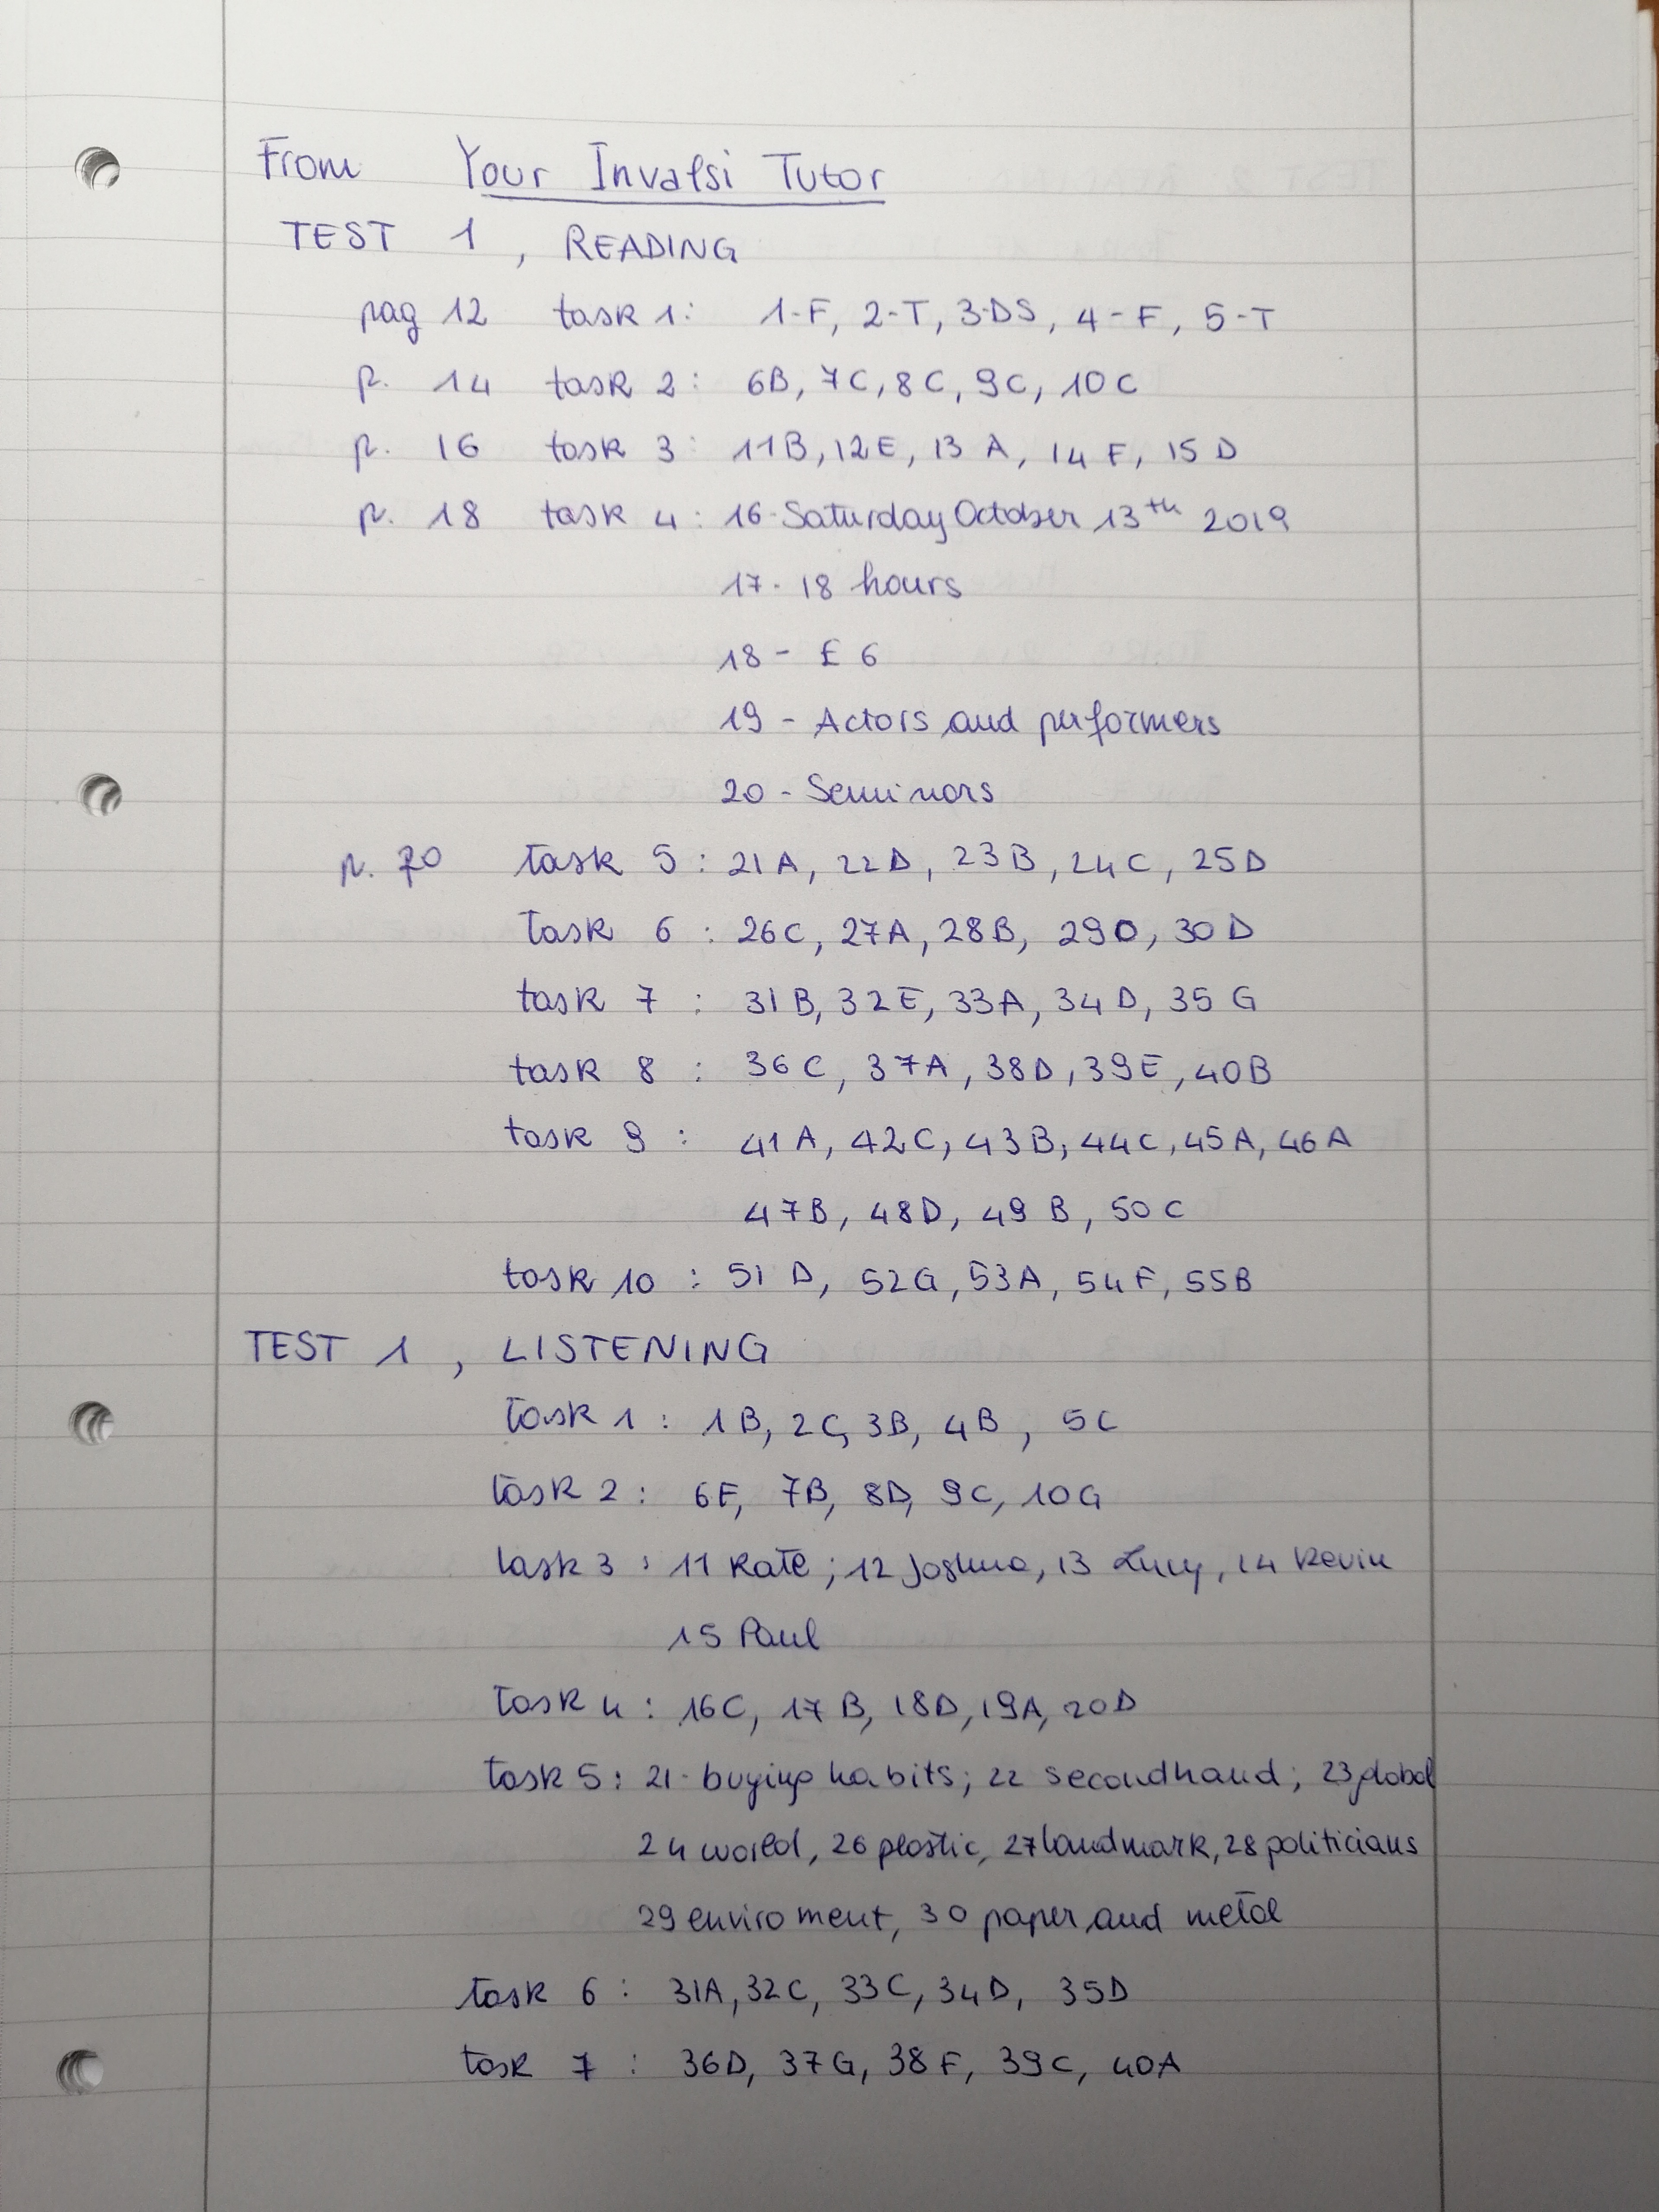 From Your Invalsi Tutor
TEST 1, READING
pag 12 task 1: 1-F, 2-T, 3-DS, 4-F, 5-T
p. 14 task 2: 6B, 7C, 8C, 9C, 10C
p. 16 task 3: 11B, 12E, 13 A, 14 F, 15 D
p. 18 task 4: 16-Saturday October 13th 2019
17- 18 hours
18- £ 6
19 - Actors and performers
20 - Seminars
p. 70 task 5: 21A, 22D, 23B, 24C, 25D
task 6: 26C, 27A, 28B, 29D, 30D
task 7: 31B, 32E, 33A, 34D, 35G
task 8: 36C, 37A, 38D, 39E, 40B
task 9: 41A, 42C, 43B, 44C, 45A, 46A
47B, 48D, 49B, 50C
task 10: 51D, 52G, 53A, 54F, 55B
TEST 1, LISTENING
task 1: 1B, 2C, 3B, 4B, 5C
task 2: 6F, 7B, 8D, 9C, 10G
task 3: 11 Kate; 12 Joshua, 13 Lucy, 14 Kevin
15 Paul
task 4: 16C, 17B, 18D, 19A, 20D
task 5: 21-buying habits; 22 secondhand; 23 global
24 world, 26 plastic, 27 landmark, 28 politicians
29 enviroment, 30 paper and metal
task 6: 31A, 32C, 33C, 34D, 35D
task 7: 36D, 37G, 38F, 39C, 40A